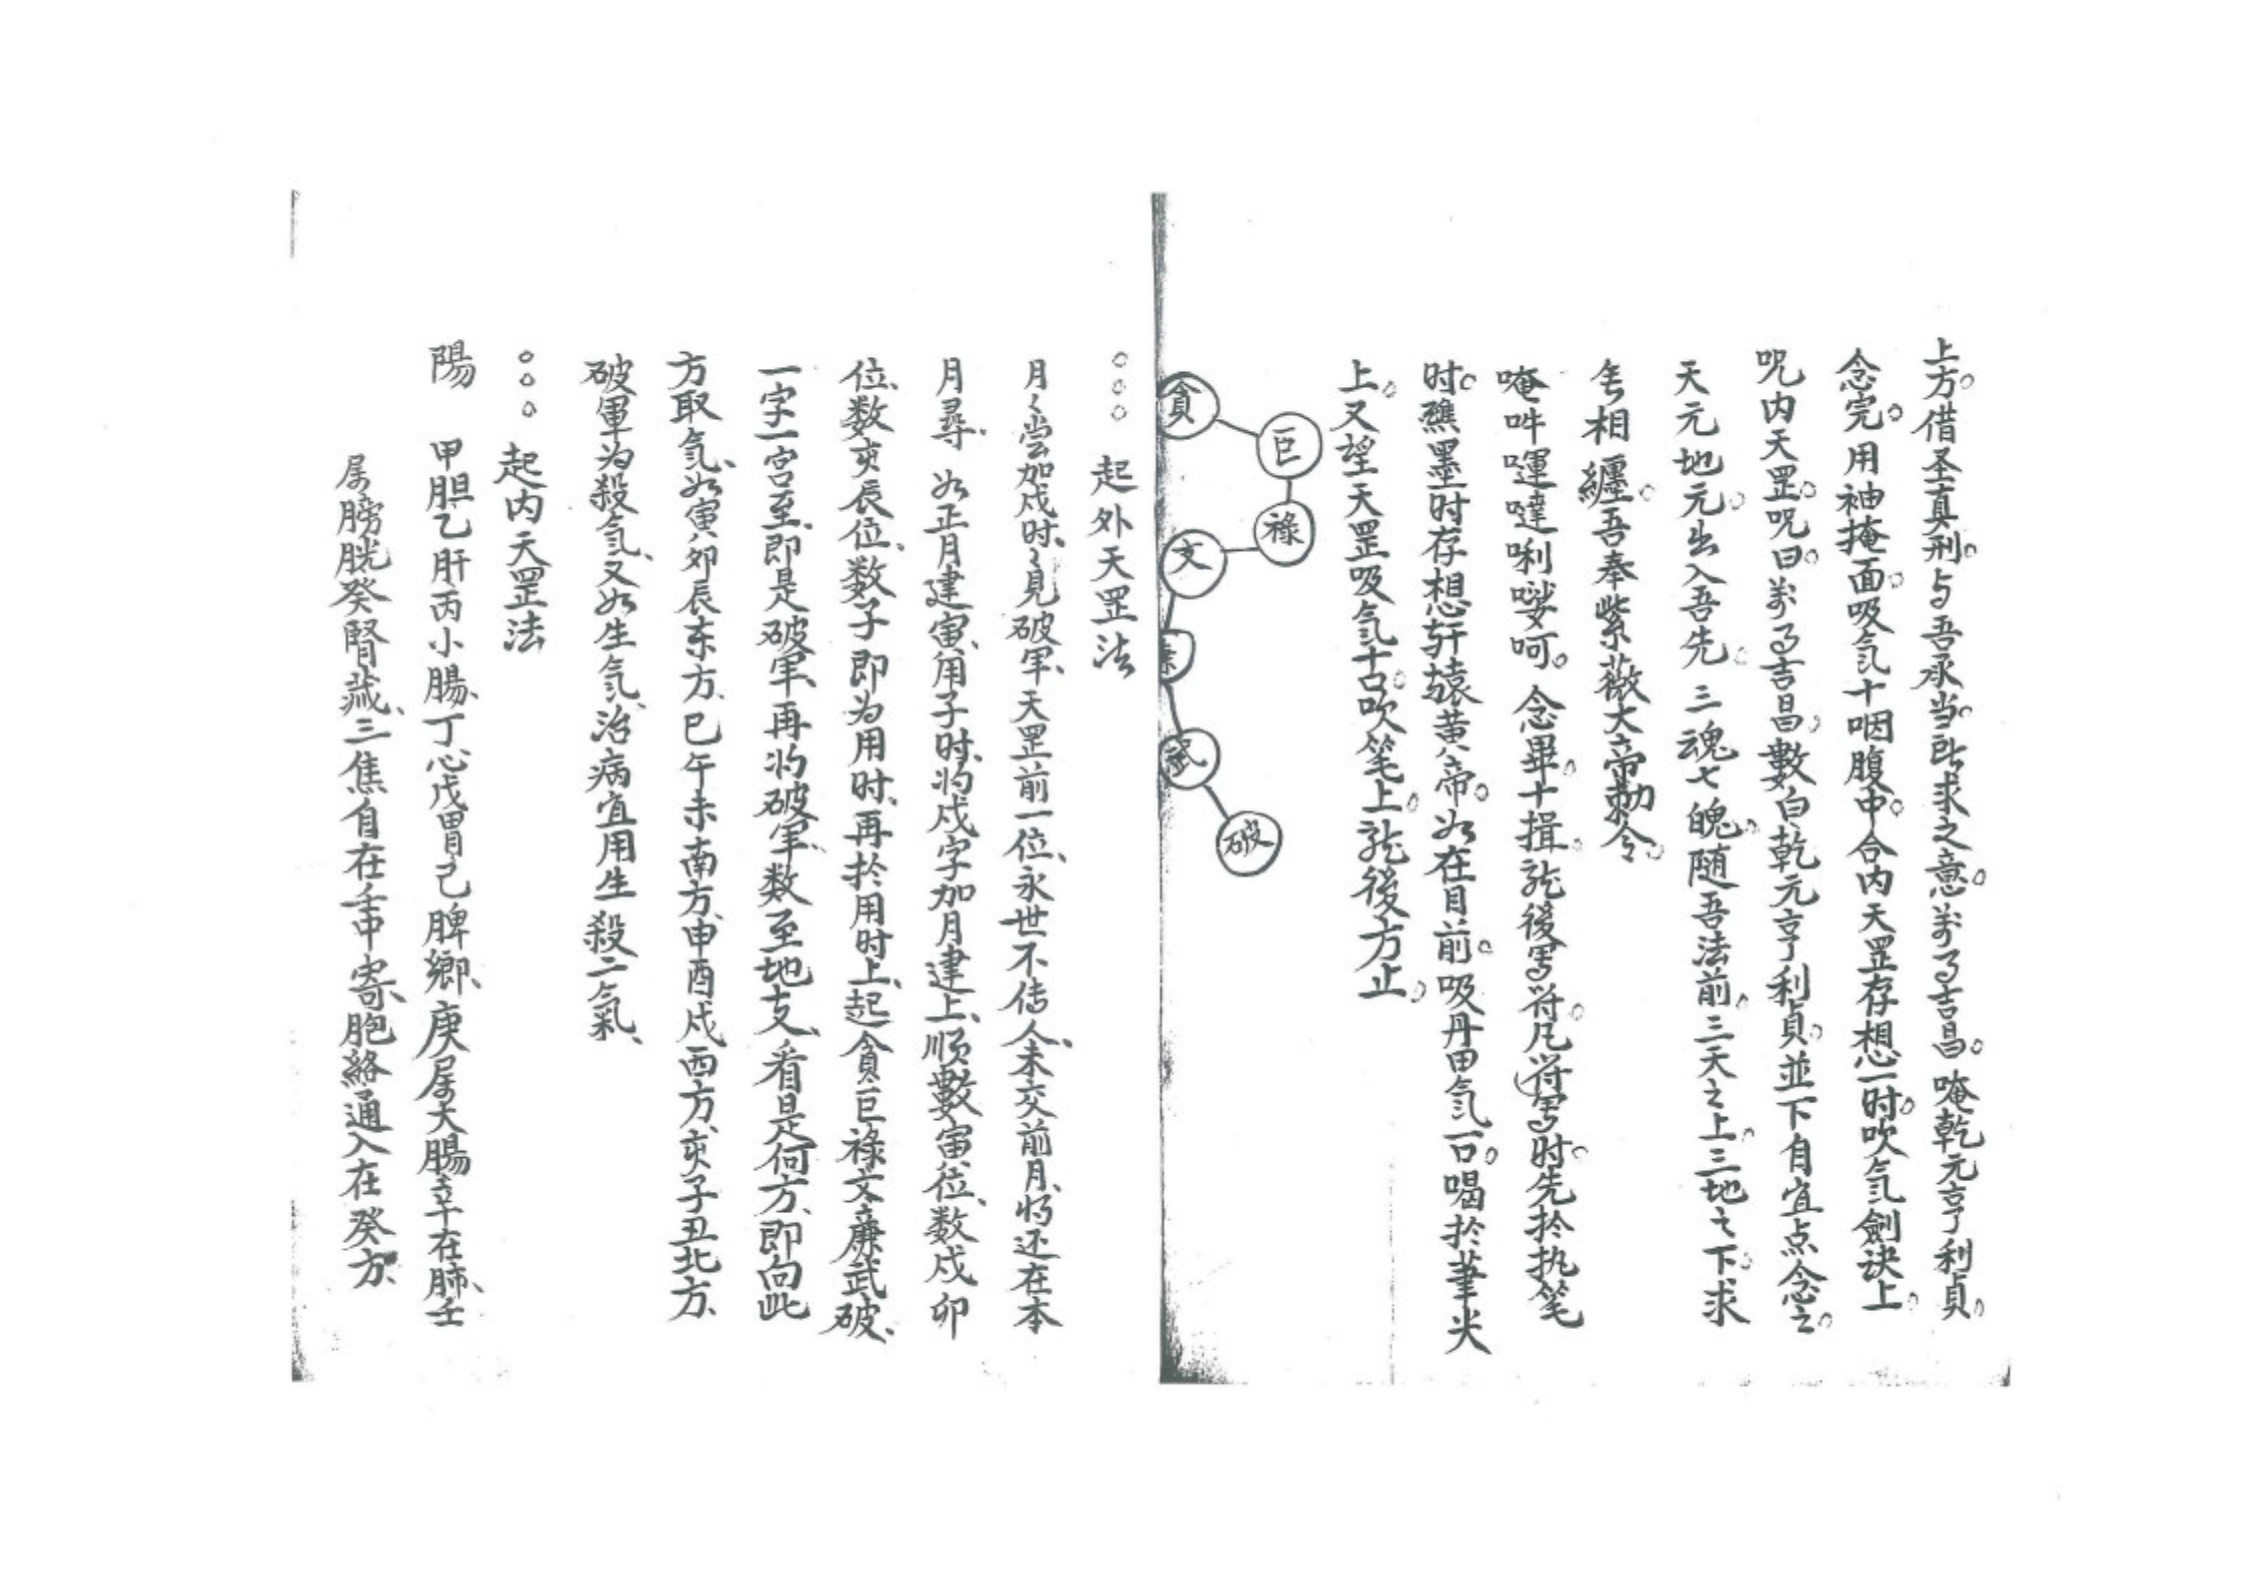 上方。借圣真刑。与吾承当。所求之意。万事吉昌。唵乾元亨利貞。
念完。用袖掩面。吸気十咽腹中。合内天罡存想一时。吹気劍訣上。
呪内天罡。呪曰。万事吉昌。數白乾元亨利貞。並下自宜点念之。
天元地元。出入吾先。三魂七魄。随吾法前。三天之上。三地之下。求
相纏。吾奉紫薇大帝勅令。
唵吽囉噠唎娑呵。念畢。十揖。然後写符。凡符写时。先於执笔
时。蘸墨时存想轩辕黄帝。如在目前。吸丹田気一口。喝於筆尖
上。又望天罡吸気十口。吹笔上。然後方止。
貪
巨
祿
文
武
破
○○○ 起外天罡法
月々尝加戌时、々見破军、天罡前一位、永世不传人、未交前月、将还在本
月尋、如正月建寅、用子时、将戌字加月建上、順數寅位、数戌卯
位、数亥辰位、数子即为用时、再於用时上、起貪巨祿文廉武破、
一字一宮至、即是破军、再将破军数至地支、看是何方、即向此
方取気、如寅卯辰东方、巳午未南方、申酉戌西方、亥子丑北方、
破軍为殺気、又如生気、治病宜用生殺二氣、
○○○ 起内天罡法
陽 甲胆乙肝丙小腸、丁心戊胃己脾鄉、庚属大腸辛在肺、壬
属膀胱癸腎藏、三焦自在壬中寄、胞絡通入在癸方、